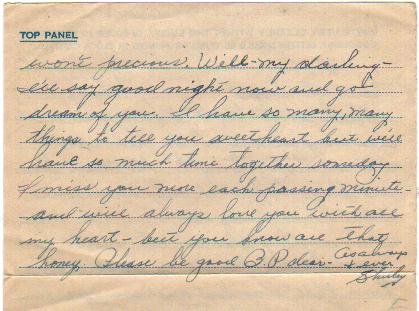 TOP PANEL
won't precious. Well - my darling -
I'll say good night now and go
dream of you. I have so many, many
things to tell you sweetheart but we'll
have so much time together someday
I miss you more each passing minute
and will always love you with all
my heart - but you know all that
honey. Please be good B.P. dear -
As always
& ever
Shirley